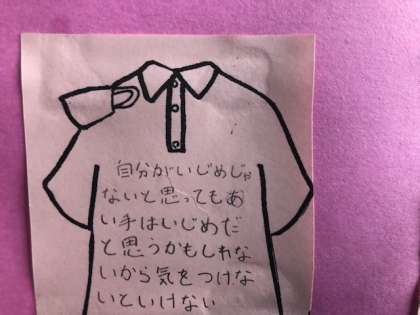 自分がいじめじゃ
ないと思ってもあ
い手はいじめだ
と思うかもしれな
いから気をつけな
いといけない